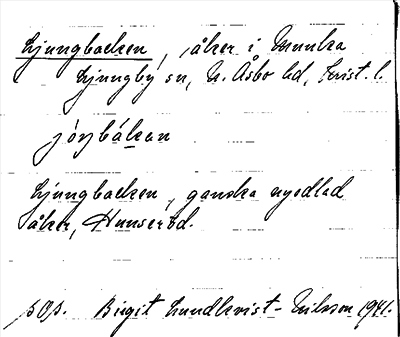 Ljungbacken, åker i Munka
Ljungby sn, N. Åsbo hd, Krist. l.
jóŋbákan
Ljungbacken, ganska nyodlad
åker, Hunseröd.
pOp. Birgit Lundkvist-Nilsson 1941.